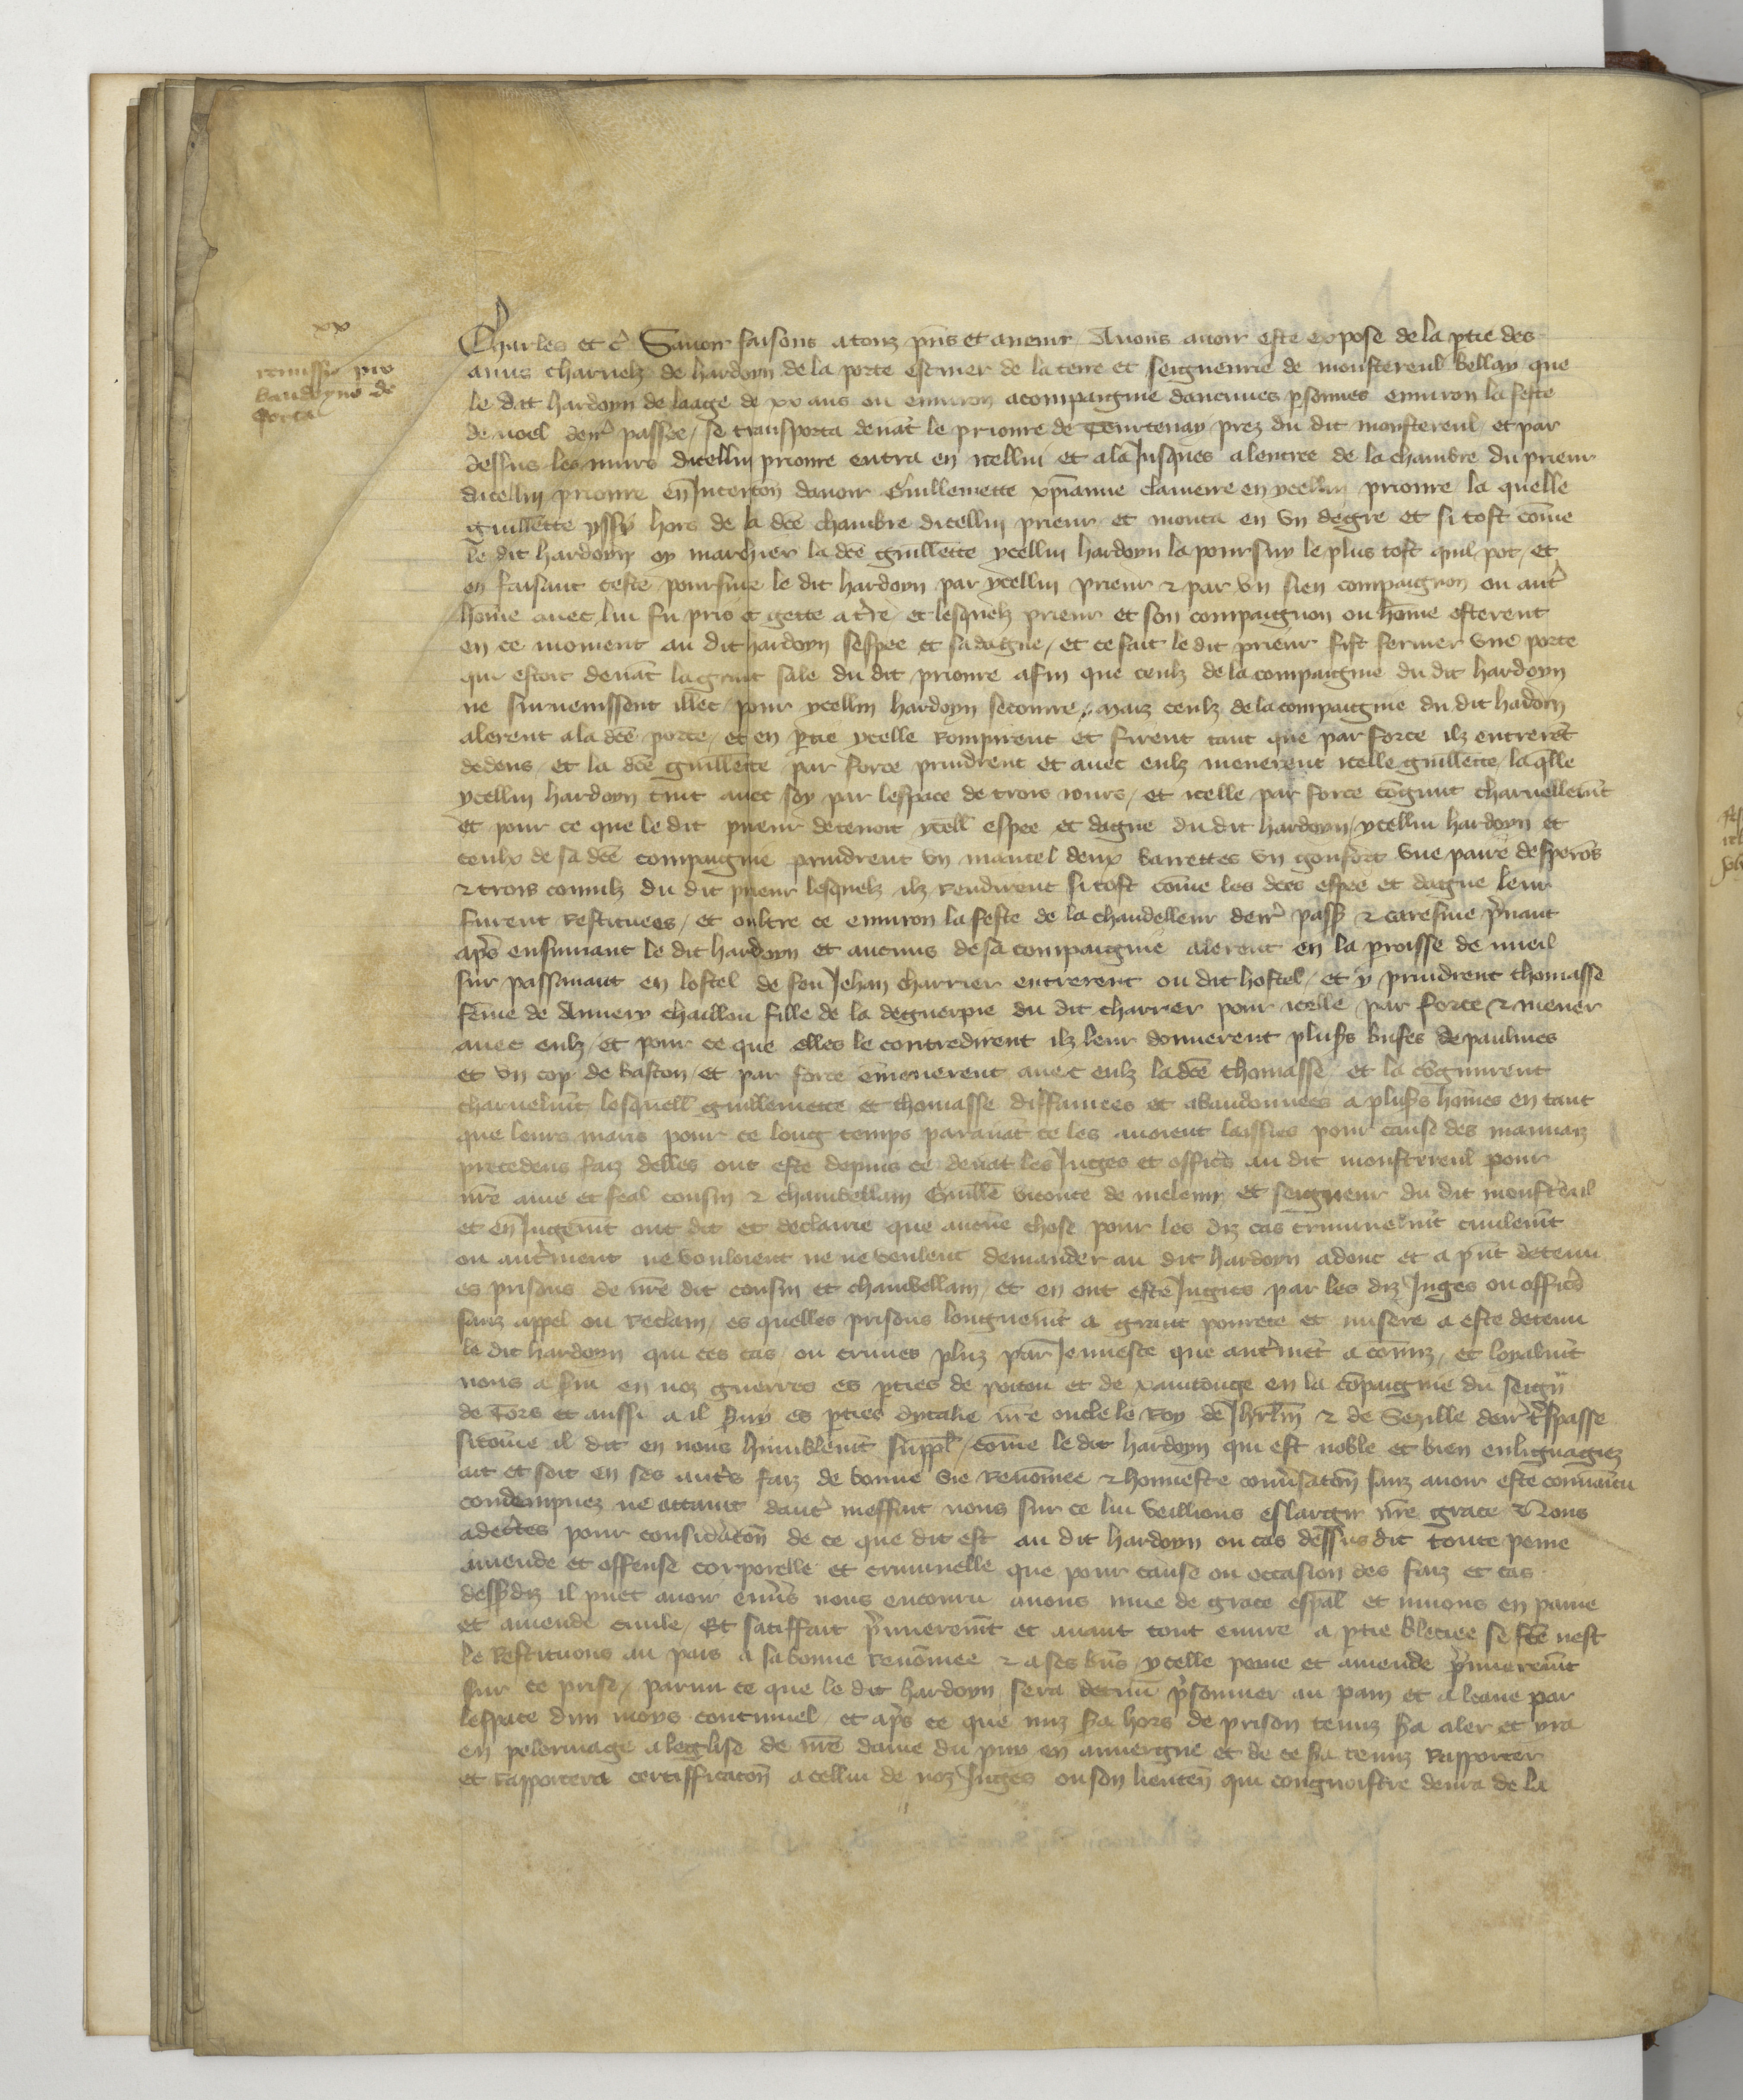 xx
remissio pro
baudoyno de
Porta
Charles et c̃ Savoir faisons a touz p̃ns et avenir Avons avoir este expose de la p̃tie des
amis charnelz de hardoyn de la porte escuier de la terre et seigneurie de monstereul bellay que
le dit hardoyn de laage de xx ans ou environ acompaignie daucunes p̃sonnes environ la feste
de noel derr̃ passee / se transporta devãt le prioure de Courtenay prez du dit monstereul / et par
dessus les murs dicellui prioure entra en icellui et ala Jusques a lentree de la chambre du prieur
dicellui prioure en Intencõn davoir Guillemette xp̃ianne clamere en ycellui prioure la quelle
guillem̃ette yssy hors de la dc̃e chambre dicellui prieur et monta en un degre et si tost com̃e
le dit hardoyn oy marchier la dc̃e guillem̃ette ycellui hardoyn la poursuy le plus tost quil pot / et
en faisant ceste poursuite le dit hardoyn par ycellui prieur & par un sien compaignon ou aut̃
hom̃e avec lui fu pris et gette a t̃re / et lesquelz prieur et son compaignon ou hom̃e osterent
en ce moment au dit hardoyn sespee et sa dague / et ce fait le dit prieur fist fermer une porte
qui estoit devãt la grant sale du dit prioure afin que ceulz de la compaignie du dit hardoyn
ne survenissent illec / pour ycellui hardoyn secourre / maiz ceulz de la compaignie du dit hadoin
alerent a la dc̃e porte / et en p̃tie ycelle rompirent et firent tant que par force ilz entrerẽt
dedens / et la dc̃e guillem̃ette par force prindrent et avec eulz menerent icelle guillem̃ette / la q̃lle
ycellui hardoyn tint avec soy par lespace de trois iours / et icelle par force cõgnut charnellem̃t
et pour ce que le dit prieur detenoit ycell̃ espee et dague du dit hardoyn / ycellui hardoyn et
ceulx de sa dc̃e compaignie prindrent un mantel deux barrettes un gonfort une paire desperõs
& trois connilz du dit prieur lesquelz ilz rendirent si tost com̃e les dc̃es espee et dague leur
furent restituees / et oultre ce environ la feste de la chandelleur derr̃ pass̃ & caresme p̃nant
ap̃s ensuivant le dit hardoyn et aucuns de sa compaignie alerent en la p̃roisse de nueil
sur passavant en lostel de feu Jehan charrier entrerent ou dit hostel / et y prindrent thomasse
fem̃e de Amery chaillou fille de la deguerpie du dit charrier pour icelle par force & mener
avec eulz / et pour ce que elles le contredirent ilz leur donnerent plus̃s bufes de paulmes
et un cop de baston / et par force em̃enerent avec eulz la dc̃e thomasse et la cõgnurent
charnelm̃t lesquell̃ guillemette et thomasse diffamees et abandonnees a plus̃s hom̃es en tant
que leurs maris pour ce long temps paravãt ce les avoient laissies pour cause des mauvaiz
precedens faiz delles ont este depuis ce devãt les Juges et offic̃s au dit monstereul pour
nr̃e ame et feal cousin & chambellam Guill̃e viconte de melun et seigneur du dit monst̃eul
et en Jugem̃t ont dit et declaire que aucun̄e chose pour les diz cas criminelm̃t civilem̃t
ou aut̃ment ne vouloient ne ne veulent demander au dit hardoyn adonc et a p̃nt detenu
es prisons de nr̃e dit cousin et chambellam / et en ont este Jugies par les diz Juges ou offic̃s
sanz appel ou reclam / es quelles prisons longuem̃t a grant povrete et misere a este detenu
le dit hardoyn qui ces cas / ou crimes pluz par Jennesce que aut̃m̃t a com̃iz / et loyalm̃t
nous a s̃vi en noz guerres es p̃ties de poitou et de xaintonge en la cõpaignie du seign̄
de Tors et aussi a il s̃vy es p̃ties dytalie nr̃e oncle le Roy de Jhrl̃m & de Sezille derr̃ t̃spasse
sicom̃e il dit en nous humblem̃t suppl̃ / com̃e le dit hardoyn qui est noble et bien enlignagiez
ait et soit en ses aut̃s faiz de bonne vie renom̃ee & honneste conṽsacõn sanz avoir este convaincu
condempnez ne attaint daut̃ meffait nous sur ce lui veillions eslargir nr̃e grace Nous
adec̃tes pour consid̃acõn de ce que dit est au dit hardoyn ou cas dessus dit toute peine
amende et offense corporelle et criminelle que pour cause ou occasion des faiz et cas
dess̃diz il puet avoir enṽs nous encouru avons mue de grace esp̃al et muons en paine
et amende civile / Et satiffait p̃mierem̃t et avant tout euvre a p̃tie bleciee se fc̃e nest
le restituons au pais a sa bonne renom̃ee & a ses bñs / ycelle peine et amende p̃mierem̃t
sur ce prise / parmi ce que le dit hardoyn sera detenu p̃sonnier au pain et a leaue par
lespace dun moys continuel / et ap̃s ce que miz s̃a hors de prison tenuz s̃a aler et yra
en pelerinage a leglise de nr̃e dame du puy en auvergne et de ce s̃a tenuz rapporter
et rapportera certifficacõn a cellui de noz Juges ou son lieuteñ qui congnoistre devra de la